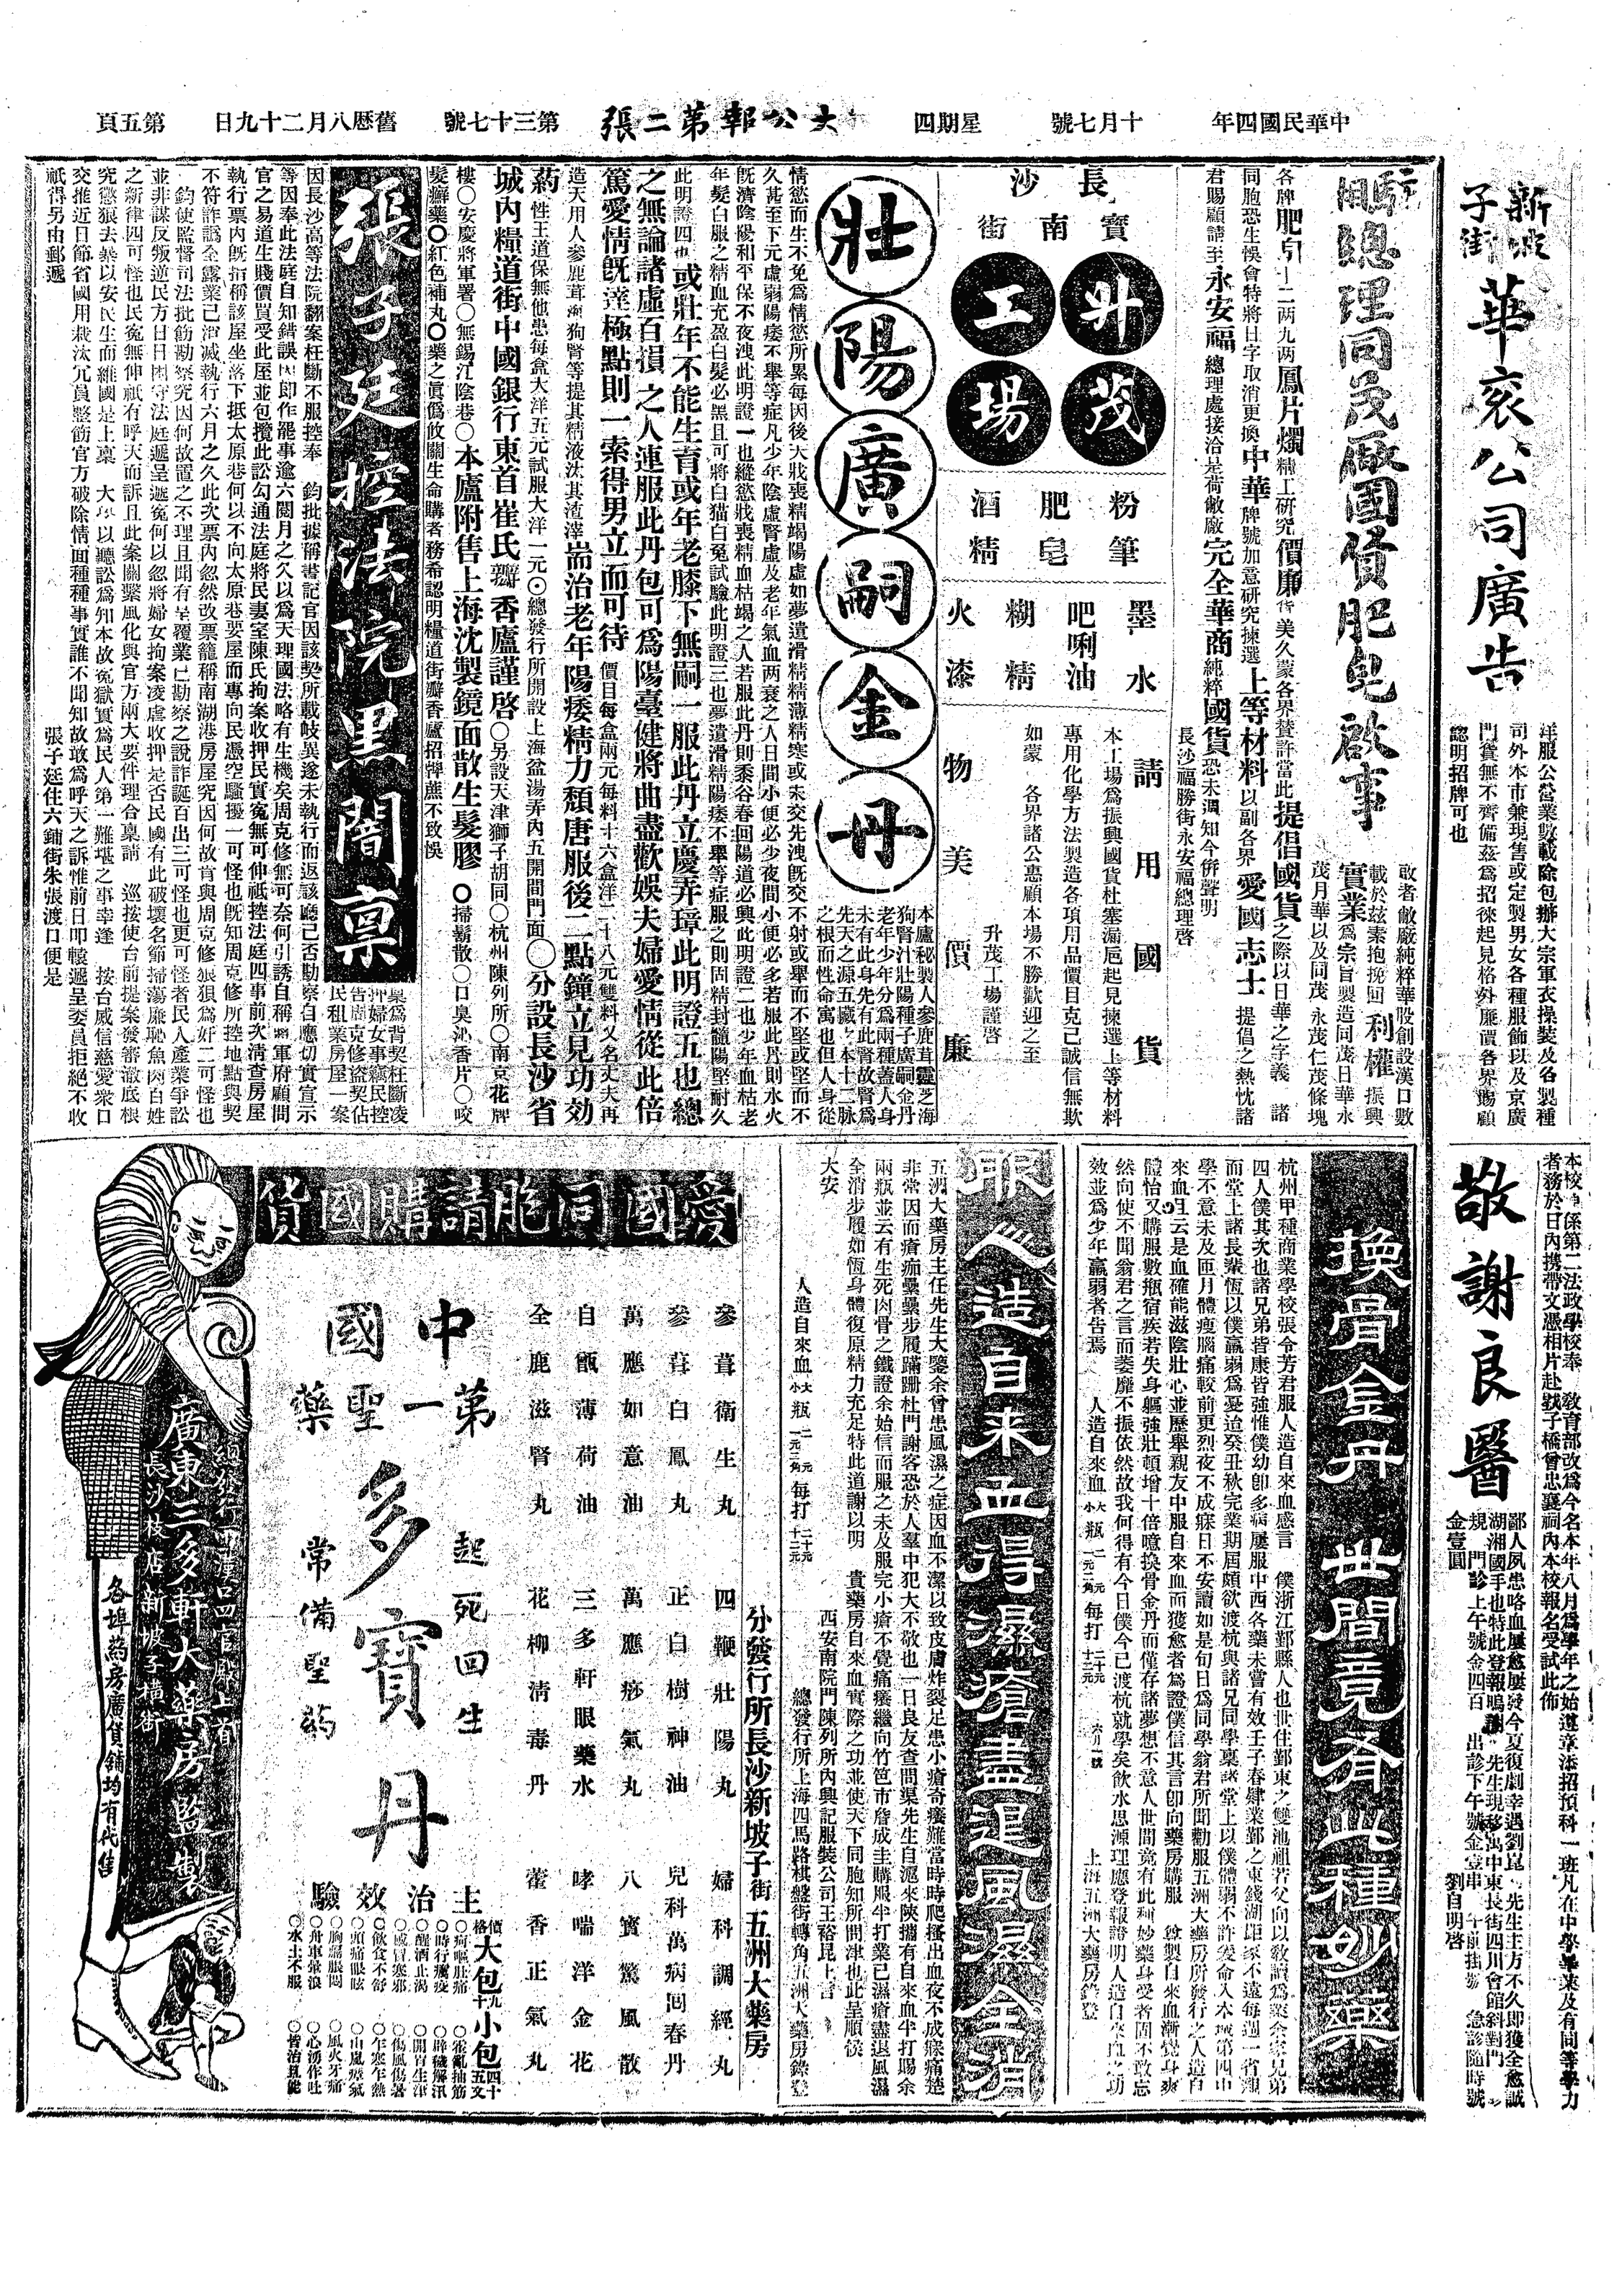 中華民國四年
十月七號
星期四
大公報第二張
第三十七號
舊歷八月二十九日
第五頁
新坡子街
華袞公司廣告
洋服公營業數載除包辦大宗軍衣操裝及各製種
司外本市兼現售或定製男女各種服飾以及京廣
門賞無不齊備茲為招徠起見格外廉價各界賜顧
認明招牌可也
總理同茂廠國貨肥皂啟事
敢者敝廠純粹華股創設漢口數
載於茲素抱挽回利權振興
實業為宗旨製造同茂日華永
茂月華以及同茂永茂仁茂條塊
提倡國貨之際以日華之字義 諸
同胞恐生悞會特將日字取消更換中華牌號加意研究揀選上等材料以副各界愛國志士 提倡之熱忱諸
完全華商純粹國貨
長沙福勝街永安福總理啓
長沙
寶南街
升茂工場
粉筆
肥皂
酒精
墨水
吧唎油
糊精
火漆
請用國貨
本工場為振興國貨杜塞漏巵起見揀選上等材料
專用化學方法製造各項用品價目克己誠信無欺
如蒙 各界諸公惠顧本場不勝歡迎之至
升茂工場謹啓
物美價廉
壯陽廣嗣金丹
本廬秘製人參鹿茸靈芝海
狗腎汁壯陽種子廣嗣金丹
老年少年分為兩種蓋人身
未有此身先有此腎故腎為
先天之源五臟之本十二脉
之根而性命寓也但人身從
情慾而生不免為情慾所累每因後天戕喪精竭陽虛如夢遺滑精精薄精寒或未交先洩旣交不射或舉而不堅或堅而不
久甚至下元虛弱陽痿不舉等症凡少年陰虛腎虛及老年氣血兩衰之人日間小便必少夜間小便必多若服此丹則水火
旣濟陰陽和平保不夜洩此明證一也縱慾戕喪精血枯竭之人若服此丹則黍谷春回陽道必興此明證二也少年血枯老
年髮白服之精血充盈白髮必黑且可將白猫白兔試驗此明證三也夢遺滑精陽痿不舉等症服之則固精封髓陽堅耐久
此明證四也或壯年不能生育或年老膝下無嗣一服此丹立慶弄璋此明證五也總
之無論諸虛百損之人連服此丹包可為陽臺健將曲盡歡娛夫婦愛情從此倍
篤愛情旣達極點則一索得男立而可待 價目每盒兩元每料十六盒洋二十八元雙料又名丈夫再
造天用人參鹿茸海狗腎等提其精液汰其渣滓耑治老年陽痿精力頹唐服後二點鐘立見功効
葯 性王道保無他患每盒大洋五元試服大洋一元⊙總發行所開設上海盆湯弄內五開間門面〇分設長沙省
城內糧道街中國銀行東首崔氏瓣香廬謹啓〇另設天津獅子胡同〇杭州陳列所〇南京花牌
樓〇安慶將軍署〇無錫江陰巷〇本廬附售上海沈製鏡面散生髮膠 〇掃鬍散〇口臭沁香片〇咬
髮癬藥〇紅色補丸〇藥之眞僞攸關生命購者務希認明糧道街瓣香廬招牌蔗不致悞
張子廷控法院黑闇禀
禀為背契枉斷凌
押婦女事竊民控
告周克修盜契佔
民租業房屋一案
因長沙高等法院翻案枉斷不服控奉 鈞批據稱書記官因該契所載岐異遂未執行而返該廳已否勘察自應切實宣示
等因奉此法庭自知錯誤囚即作罷事逾六閱月之久以為天理國法略有生機矣周克修無可奈何引誘自稱將軍府顧問
官之易道生賤價買受此屋並包攬此訟勾通法庭將民妻室陳氏拘案收押民實冤無可伸祇控法庭四事前次清查房屋
執行票內旣指稱該屋坐落下抵太原巷何以不向太原巷要屋而專向民憑空騷擾一可怪也旣知周克修所控地點與契
不符詐譌全露業已消滅執行六月之久此次票內忽然改票籠稱南湖港房屋究因何故肯與周克修狼狽為奸二可怪也
鈞使監督司法批飭勘察究因何故置之不理且聞有呈覆業已勘察之說詐誕百出三可怪也更可怪者民人產業爭訟
並非謀反叛逆民方日日困守法庭遞呈遞冤何以忽將婦女拘案凌虐收押是否民國有此破壞名節掃蕩廉恥魚肉百姓
之新律四可怪也民冤無伸祇有呼天而訴且此案關繫風化與官方兩大要件理合稟請 巡按使台前提案發審澈底根
究懲狠去暴以安民生而維國是上稟 大人以聽訟為知本故冤獄實為民人第一難堪之事幸逢 按台威信慈愛衆口
交推近日節省國用裁汰冗員整飭官方破除情面種種事實誰不聞知故敢為呼天之訴惟前日叩轅遞呈委員拒絕不收
祇得另由郵遞
張子廷住六鋪街朱張渡口便是
本校係第二法政學校奉 敎育部改為今名本年八月為學年之始遵章添招預科一班凡在中學畢業及有同等學力
者務於日內携帶文憑相片赴戥子橋曾忠襄祠內本校報名受試此佈
敬謝良醫
鄙人夙患咯血屢愈屢發今夏復劇幸遇劉崑 先生主方不久即獲全愈誠
湖湘國手也特此登報鳴謝 先生現移寓中東長街四川會館斜對門
規 門診上午號金四百 出診下午號金壹串 午前挂號 急診隨時號
金壹圓
劉自明啓
換骨金丹 世間竟有此種妙藥
杭州甲種商業學校張令芳君服人造自來血感言 僕浙江鄞縣人也世住鄞東之雙池祖若父向以敎讀為業余家兄弟
四人僕其次也諸兄弟皆康皆強惟僕幼卽多病屢服中西各藥未嘗有效壬子春肄業鄞之東錢湖距家不遠每週一省覲
而堂上諸長輩恆以僕羸弱為憂迨癸丑秋完業期屆頗欲渡杭與諸兄同學稟諸堂上以僕體弱不許爰命入本城第四中
學不意未及匝月體瘦腦痛較前更烈夜不成寐日不安讀如是旬日為同學翁君所聞勸服五洲大藥房所發行之人造自
來血且云是血確能滋陰壯心並歷舉親友中服自來血而獲愈者為證僕信其言卽向藥房購服 尊製自來血漸覺身爽
體怡又購服數瓶宿疾若失身軀強壯頓增十倍噫換骨金丹而僅存諸夢想不意人世間竟有此種妙藥身受者固不敢忘
然向使不聞翁君之言而萎靡不振依然故我何得有今日僕今已渡杭就學矣飲水思源理應登報證明人造自來血之功
效並為少年羸弱者告焉 人造自來血 大瓶二元 小瓶一元二角 每打 二十元 十二元 上海五洲大藥房錄登
服人造自來血得濕瘡盡退風濕全消
五洲大藥房主任先生大鑒余曾患風濕之症因血不潔以致皮膚炸裂足患小瘡奇癢難當時時爬搔出血夜不成寐痛楚
非常因而瘡痂纍纍步履蹣跚杜門謝客恐於人羣中犯大不敬也一日良友查問渠先生自滬來陝攜有自來血半打賜余
兩瓶並云有生死肉骨之鐵證余始信而服之未及服完小瘡不覺痛癢繼向竹笆市詹成圭購服半打業已濕瘡盡退風濕
全消步履如恆身體復原精力充足特此道謝以明 貴藥房自來血實際之功並使天下同胞知所問津也此呈順候
大安
西安南院門陳列所內興記服裝公司王裕昆上言
人造自來血 大瓶二元 小瓶一元二角 每打 二十元 十二元
總發行所上海四馬路棋盤街轉角五洲大藥房錄登
分發行所長沙新坡子街五洲大藥房
愛國同胞請購國貨
參茸衛生丸 四鞭壯陽丸 婦科調經丸
參茸白鳳丸 正白樹神油 兒科萬病回春丹
萬應如意油 萬應痧氣丸 八寶驚風散
自甑薄荷油 三多軒眼藥水 哮喘洋金花
全鹿滋腎丸 花柳清毒丹 藿香正氣丸
中國
第一聖藥
多寶丹
起死回生
常備聖葯
主治效驗
價格大包九十小包四十五文
〇時行癘疫
〇醒酒止渴
〇感冒寒邪
〇飲食不舒
〇頭痛眼眩
〇胸膈脹悶
〇舟車暈浪
〇水土不服
〇霍亂抽筋
〇辟穢解汛
〇開胃生津
〇傷風傷暑
〇乍寒乍熱
〇山嵐瘴氣
〇風火牙痛
〇心湧作吐
〇皆治直能
總發行所漢口四官殿上首
廣東三多軒大藥房監製
長沙枝店新坡子橫街
各埠葯房廣貨舖均有代售